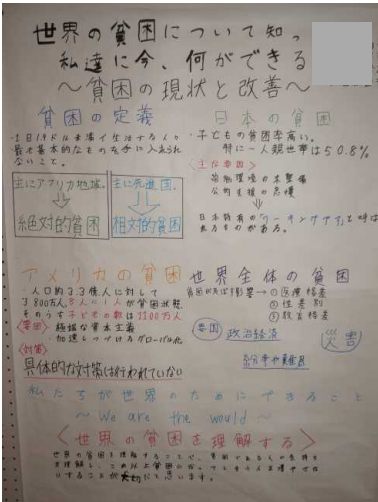 世界の貧困について知っ
私達に今、何ができる
～貧困の現状と改善～
貧困の定義
・1日1.9ドル未満で生活する人々
最も基本的なものを手に入れられ
ないこと。
主にアフリカ地域。
絶対的貧困
主に先進国。
相対的貧困
日本の貧困
・子どもの貧困率高い。
特に一人親世帯は50.8%
<主な要因>
労働環境の未整備
公的支援の怠慢
日本特有の「ワーキングプア」と呼ば
れるものがある。
アメリカの貧困
・人口約3.3億人に対して
3800万人、8人に1人が貧困状態
そのうち子どもの数は1200万人
<要因> 極端な資本主義
・加速しつづけるグローバル化
<対策>
具体的な対策は行われていない
世界全体の貧困
貧困が及ぼす影響→①医療格差
②性差別
③教育格差
要因 政治経済
災害
紛争や難民
私たちが世界のためにできること
～We are the would～
<世界の貧困を理解する>
世界の貧困を理解することで、
が大切だと思います。